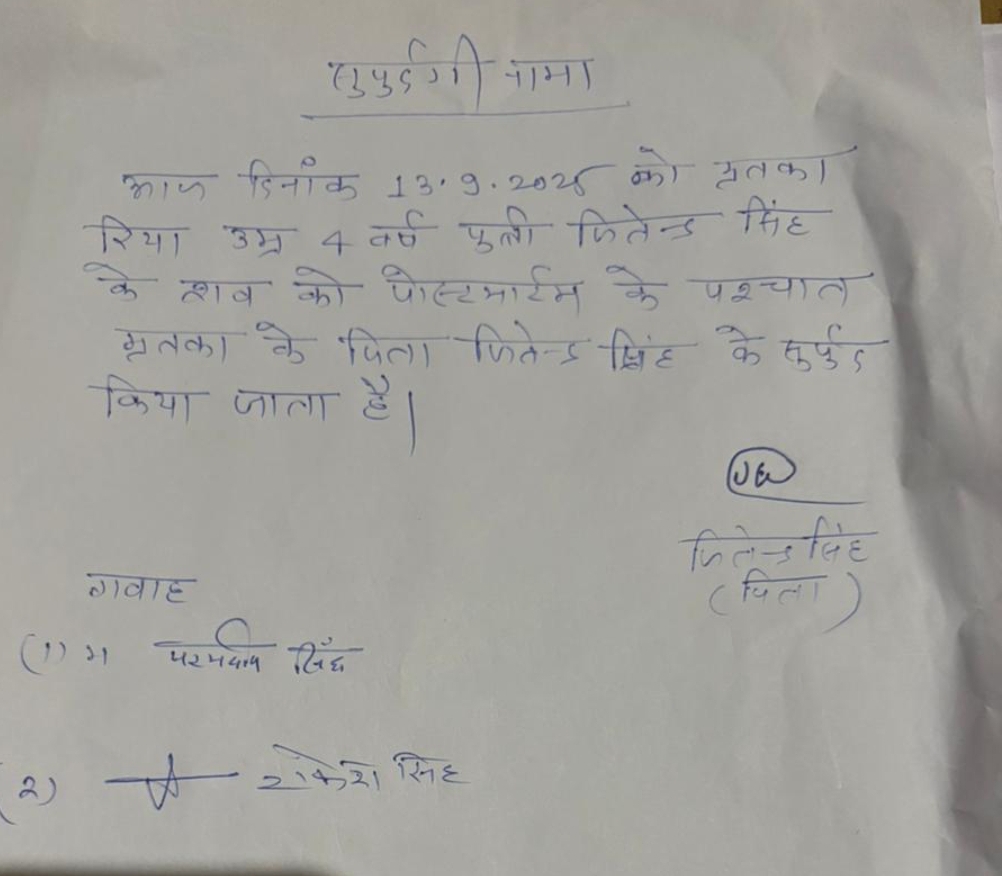 सुपुर्दगी नामा
आज दिनांक 13.9.2025 को मृतका
रिया उम्र 4 वर्ष पुत्री जितेन्द्र सिंह
के शव को पोस्टमार्टम के पश्चात
मृतका के पिता जितेन्द्र सिंह के सुर्पुद
किया जाता है।
जितेन्द्र सिंह
(पिता)
गवाह
(1) सिंह
(2) राकेश सिंह